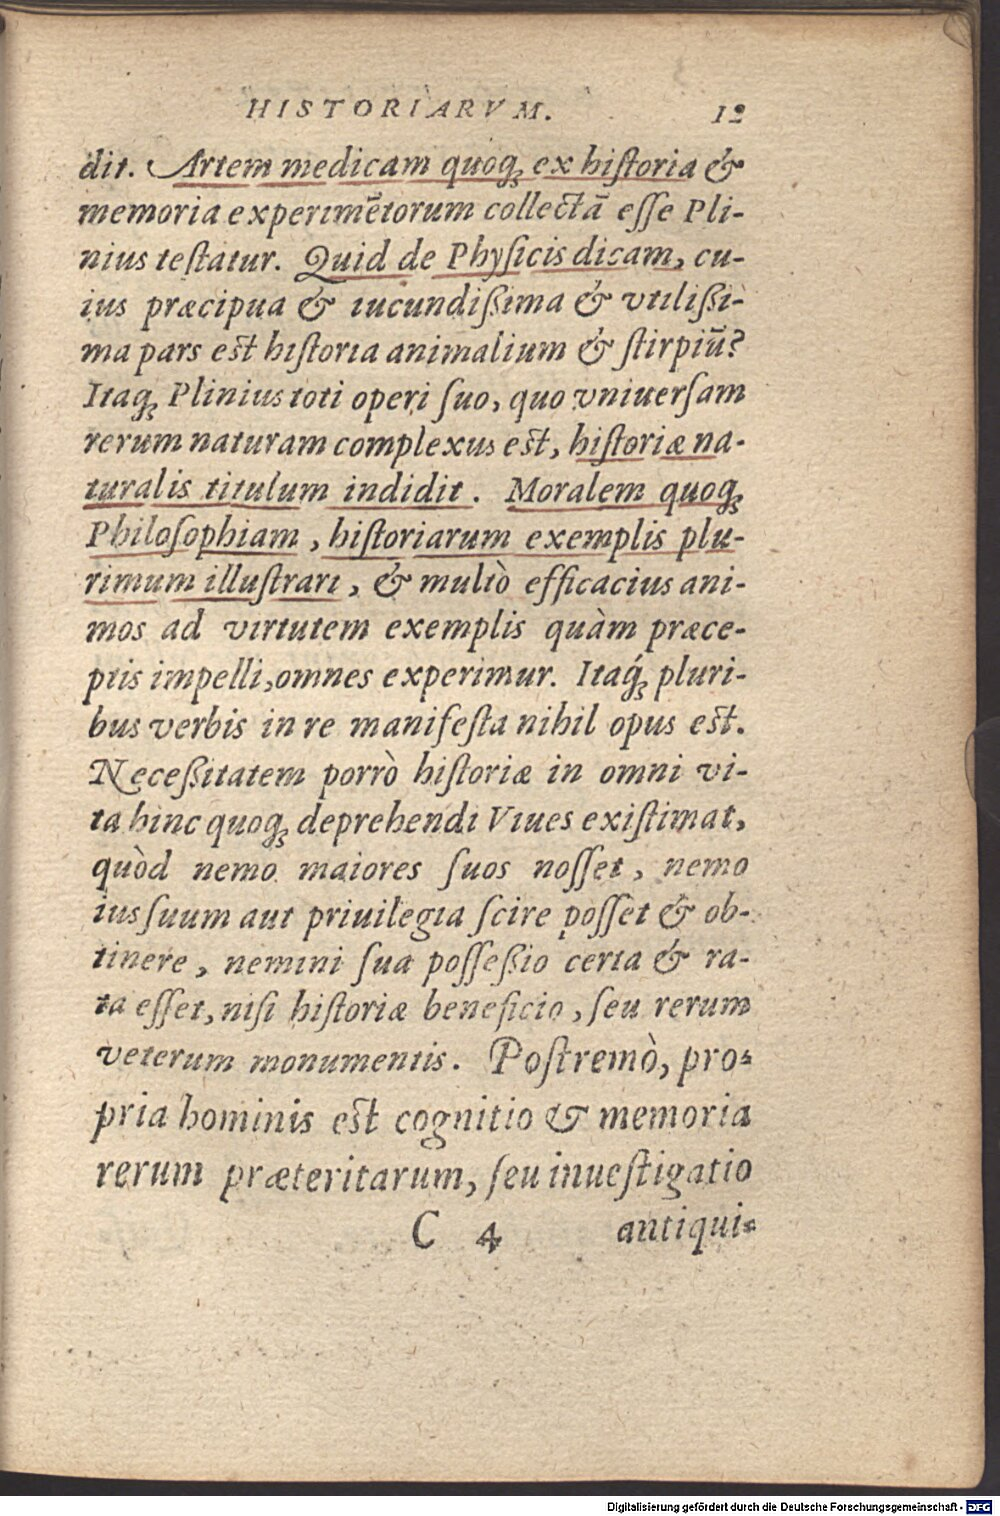 HISTORIARVM. 12
dit. Artem medicam quoq́ꝫ ex historia &
memoria experimētorum collectā esse Pli-
nius testatur. Quid de Physicis dicam, cu-
ius præcipua & iucundißima & vtilißi-
ma pars est historia animalium & stirpiū?
Itaqꝫ Plinius toti operi suo, quo vniuersam
rerum naturam complexus est, historiæ na-
turalis titulum indidit. Moralem quoqꝫ
Philosophiam, historiarum exemplis plu-
rimum illustrari, & multò efficacius ani-
mos ad virtutem exemplis quàm præce-
ptis impelli, omnes experimur. Itaq́ꝫ pluri-
bus verbis in re manifesta nihil opus est.
Neceßitatem porrò historiæ in omni vi-
ta hinc quoqꝫ deprehendi Viues existimat,
quòd nemo maiores suos nosset, nemo
ius suum aut priuilegia scire posset & ob-
tinere, nemini sua posseßio certa & ra-
ta esset, nisi historiæ beneficio, seu rerum
veterum monumentis. Postremò, pro-
pria hominis est cognitio & memoria
rerum præteritarum, seu inuestigatio
C 4 antiqui-
Digitalisierung gefördert durch die Deutsche Forschungsgemeinschaft - DFG